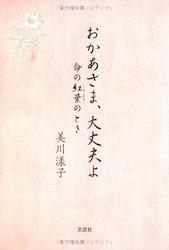 「著作権保護コンテンツ」
おかあさま、大丈夫よ
命の紅葉のとき
美川漾子
文芸社
「著作権保護コンテンツ」